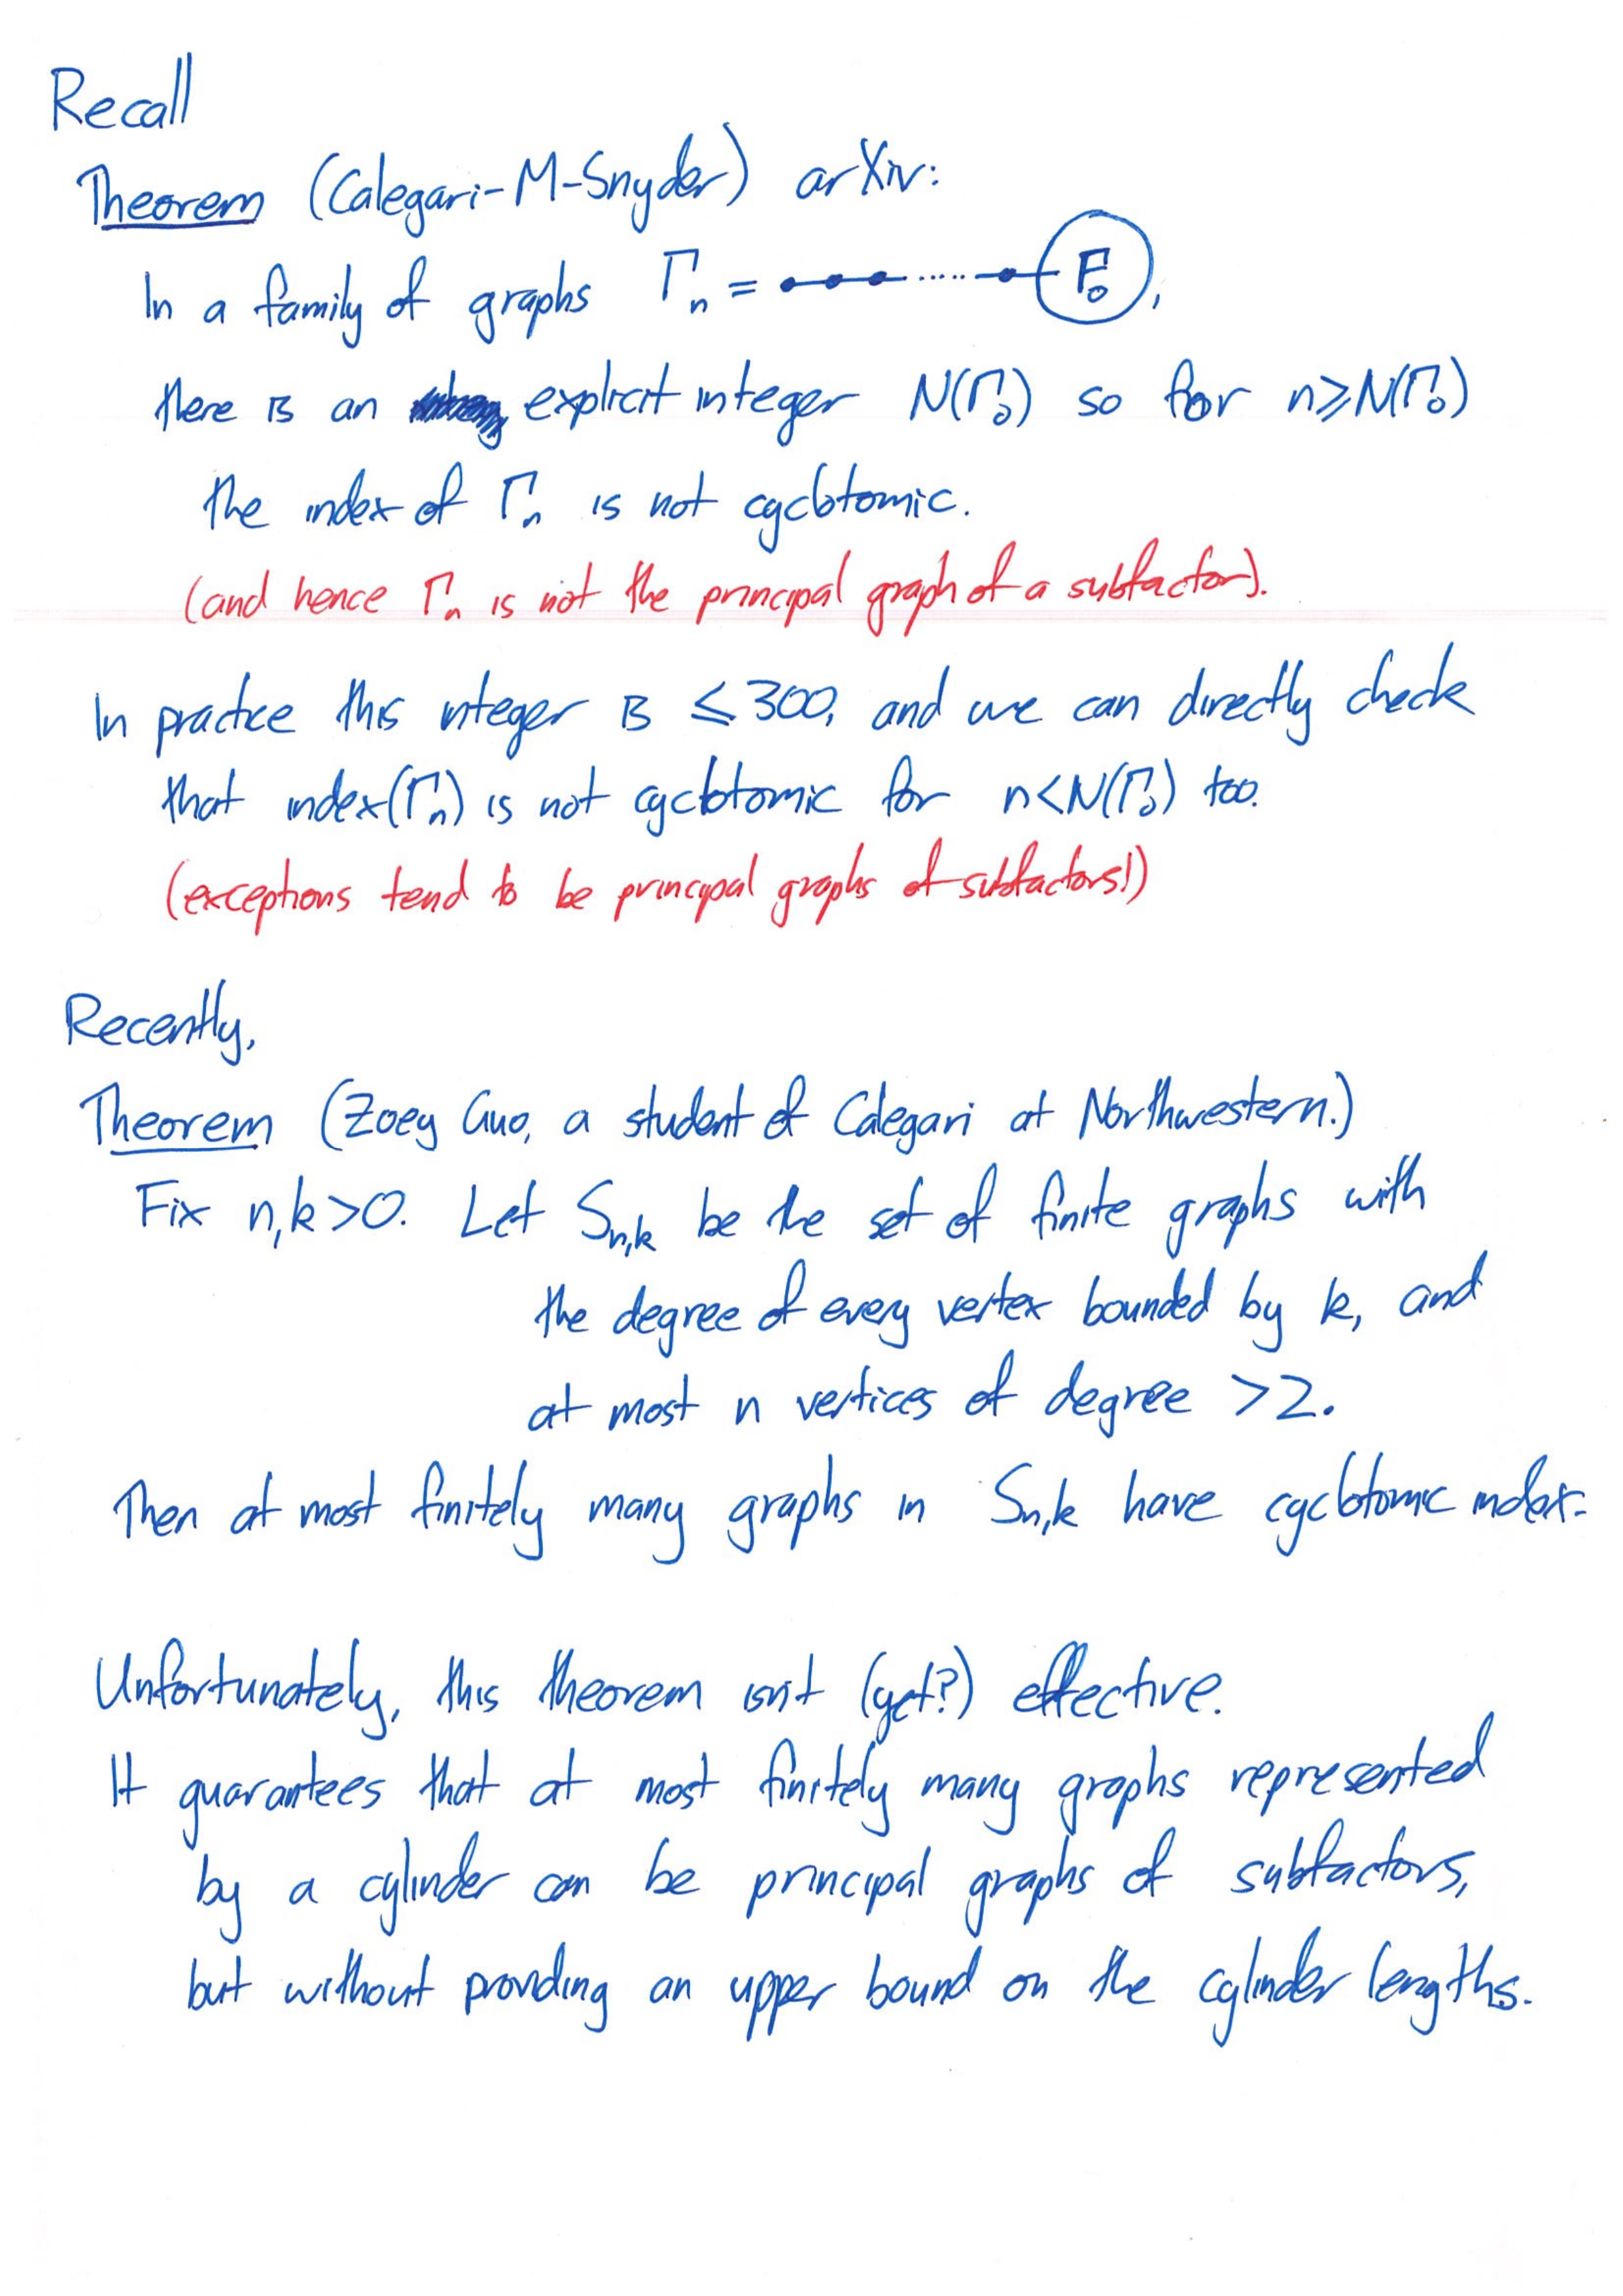 Recall
Theorem (Calegari-M-Snyder) arXiv:
In a family of graphs Γn = Γ0,
there is an explicit integer N(Γ0) so for n≥N(Γ0)
the index of Γn is not cyclotomic.
(and hence Γn is not the principal graph of a subfactor).
In practice this integer is ≤300, and we can directly check
that index(Γn) is not cyclotomic for n<N(Γ0) too.
(exceptions tend to be principal graphs of subfactors!)
Recently,
Theorem (Zoey Guo, a student of Calegari at Northwestern.)
Fix n,k>0. Let Sn,k be the set of finite graphs with
the degree of every vertex bounded by k, and
at most n vertices of degree >2.
Then at most finitely many graphs in Sn,k have cyclotomic index.
Unfortunately, this theorem isn't (yet?) effective.
It guarantees that at most finitely many graphs represented
by a cylinder can be principal graphs of subfactors,
but without providing an upper bound on the cylinder lengths.